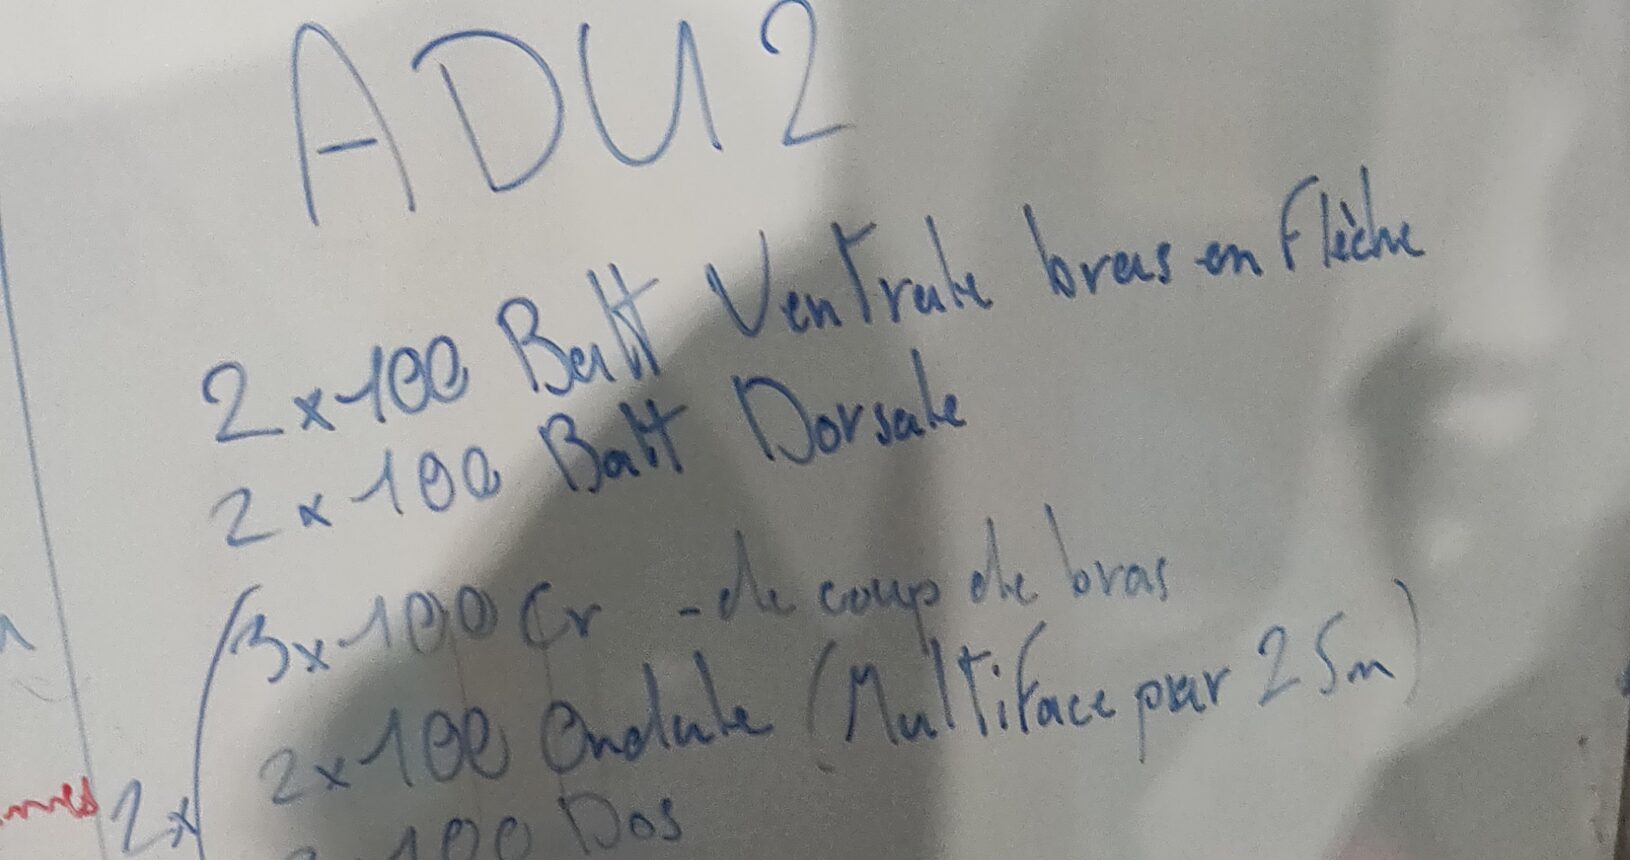 ADU 2
2x100 Batt Ventrale bras en flèche
2x100 Batt Dorsale
3x100 Cr - de coup de bras
2x100 Ondule (Multiface par 25m)
2x
100 Dos